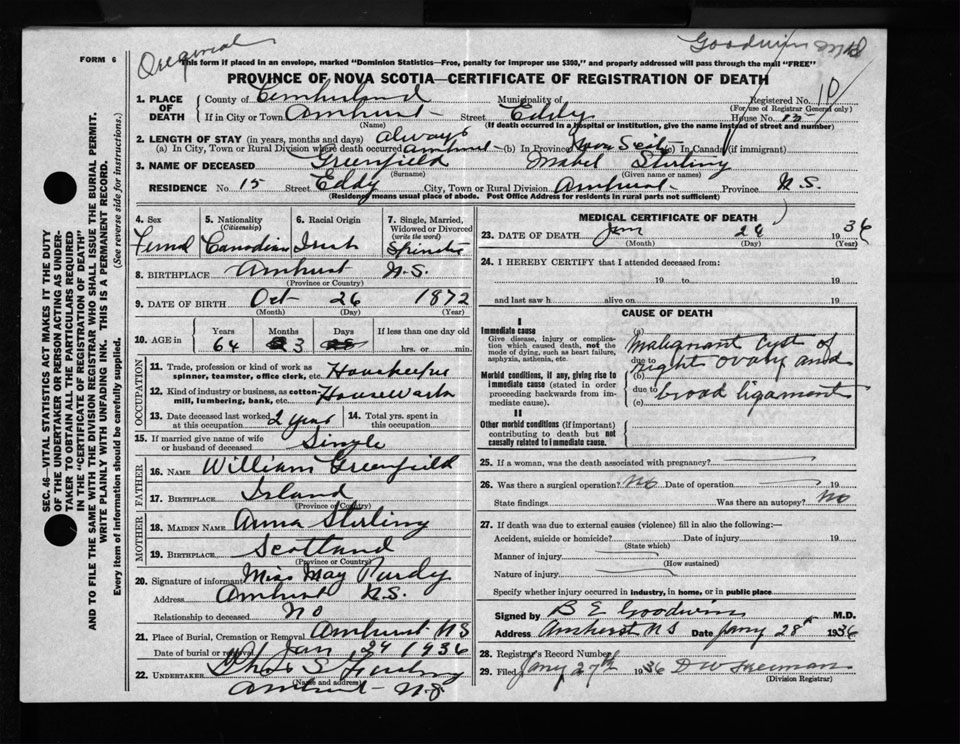 Original
Goodwin MD
FORM 6
This form if placed in an envelope, marked "Dominion Statistics—Free, penalty for improper use $300," and properly addressed will pass through the mail "FREE"
PROVINCE OF NOVA SCOTIA—CERTIFICATE OF REGISTRATION OF DEATH
1. PLACE OF DEATH
County of Cumberland Municipality of Registered No. 10
(For use of Registrar General only)
If in City or Town Amherst Street Eddy House No. 15
(Name) (If death occurred in a hospital or institution, give the name instead of street and number)
2. LENGTH OF STAY (in years, months and days) always
(a) In City, Town or Rural Division where death occurred Amherst (b) In Province Nova Scotia (c) In Canada (if immigrant)
3. NAME OF DECEASED Greenfield Mabel Sterling
(Surname) (Given name or names)
RESIDENCE No. 15 Street Eddy City, Town or Rural Division Amherst Province N.S.
(Residence means usual place of abode. Post Office Address for residents in rural parts not sufficient)
4. Sex
Femal
5. Nationality
(Citizenship)
Canadian
6. Racial Origin
Irish
7. Single, Married, Widowed or Divorced
(write the word)
Spinster
8. BIRTHPLACE Amherst N.S.
(Province or Country)
9. DATE OF BIRTH Oct 26 1872
(Month) (Day) (Year)
10. AGE in
Years Months Days If less than one day old
64 3 hrs. or min.
OCCUPATION
11. Trade, profession or kind of work as spinner, teamster, office clerk, etc. Housekeeper
12. Kind of industry or business, as cotton-mill, lumbering, bank, etc. Housework
13. Date deceased last worked at this occupation 2 years
14. Total yrs. spent in this occupation
15. If married give name of wife or husband of deceased Single
FATHER
16. NAME William Greenfield
17. BIRTHPLACE Island
(Province or Country)
MOTHER
18. MAIDEN NAME Anna Sterling
19. BIRTHPLACE Scotland
(Province or Country)
20. Signature of informant Miss May Purdy
Address Amherst N.S.
Relationship to deceased No
21. Place of Burial, Cremation or Removal Amherst NS
Date of burial or removal Jan 27 1936
22. UNDERTAKER
(Name and address)
Amherst N.S.
MEDICAL CERTIFICATE OF DEATH
23. DATE OF DEATH Jan 1936
(Month) (Day) (Year)
24. I HEREBY CERTIFY that I attended deceased from:
19 to 19
and last saw h alive on 19
CAUSE OF DEATH
I
Immediate cause
Give disease, injury or complication which caused death, not the mode of dying, such as heart failure, asphyxia, asthenia, etc.
(a) Malignant Cyst of
due to
right ovary and
Morbid conditions, if any, giving rise to immediate cause (stated in order proceeding backwards from immediate cause).
(b)
due to broad ligament
(c)
II
Other morbid conditions (if important) contributing to death but not causally related to immediate cause.
25. If a woman, was the death associated with pregnancy?
26. Was there a surgical operation? No Date of operation 19
State findings Was there an autopsy? No
27. If death was due to external causes (violence) fill in also the following:—
Accident, suicide or homicide? Date of injury 19
(State which)
Manner of injury
(How sustained)
Nature of injury
Specify whether injury occurred in industry, in home, or in public place
Signed by B E Goodwin M.D.
Address Amherst NS Date Jany 28th 1936
28. Registrar's Record Number
29. Filed Jany 27th 1936 D W Freeman
(Division Registrar)
SEC. 46—VITAL STATISTICS ACT MAKES IT THE DUTY
OF THE UNDERTAKER OR PERSON ACTING AS UNDER-
TAKER TO OBTAIN ALL THE PARTICULARS REQUIRED
IN THE "CERTIFICATE OF REGISTRATION OF DEATH"
AND TO FILE THE SAME WITH THE DIVISION REGISTRAR WHO SHALL ISSUE THE BURIAL PERMIT.
WRITE PLAINLY WITH UNFADING INK. THIS IS A PERMANENT RECORD.
Every item of information should be carefully supplied. (See reverse side for instructions.)